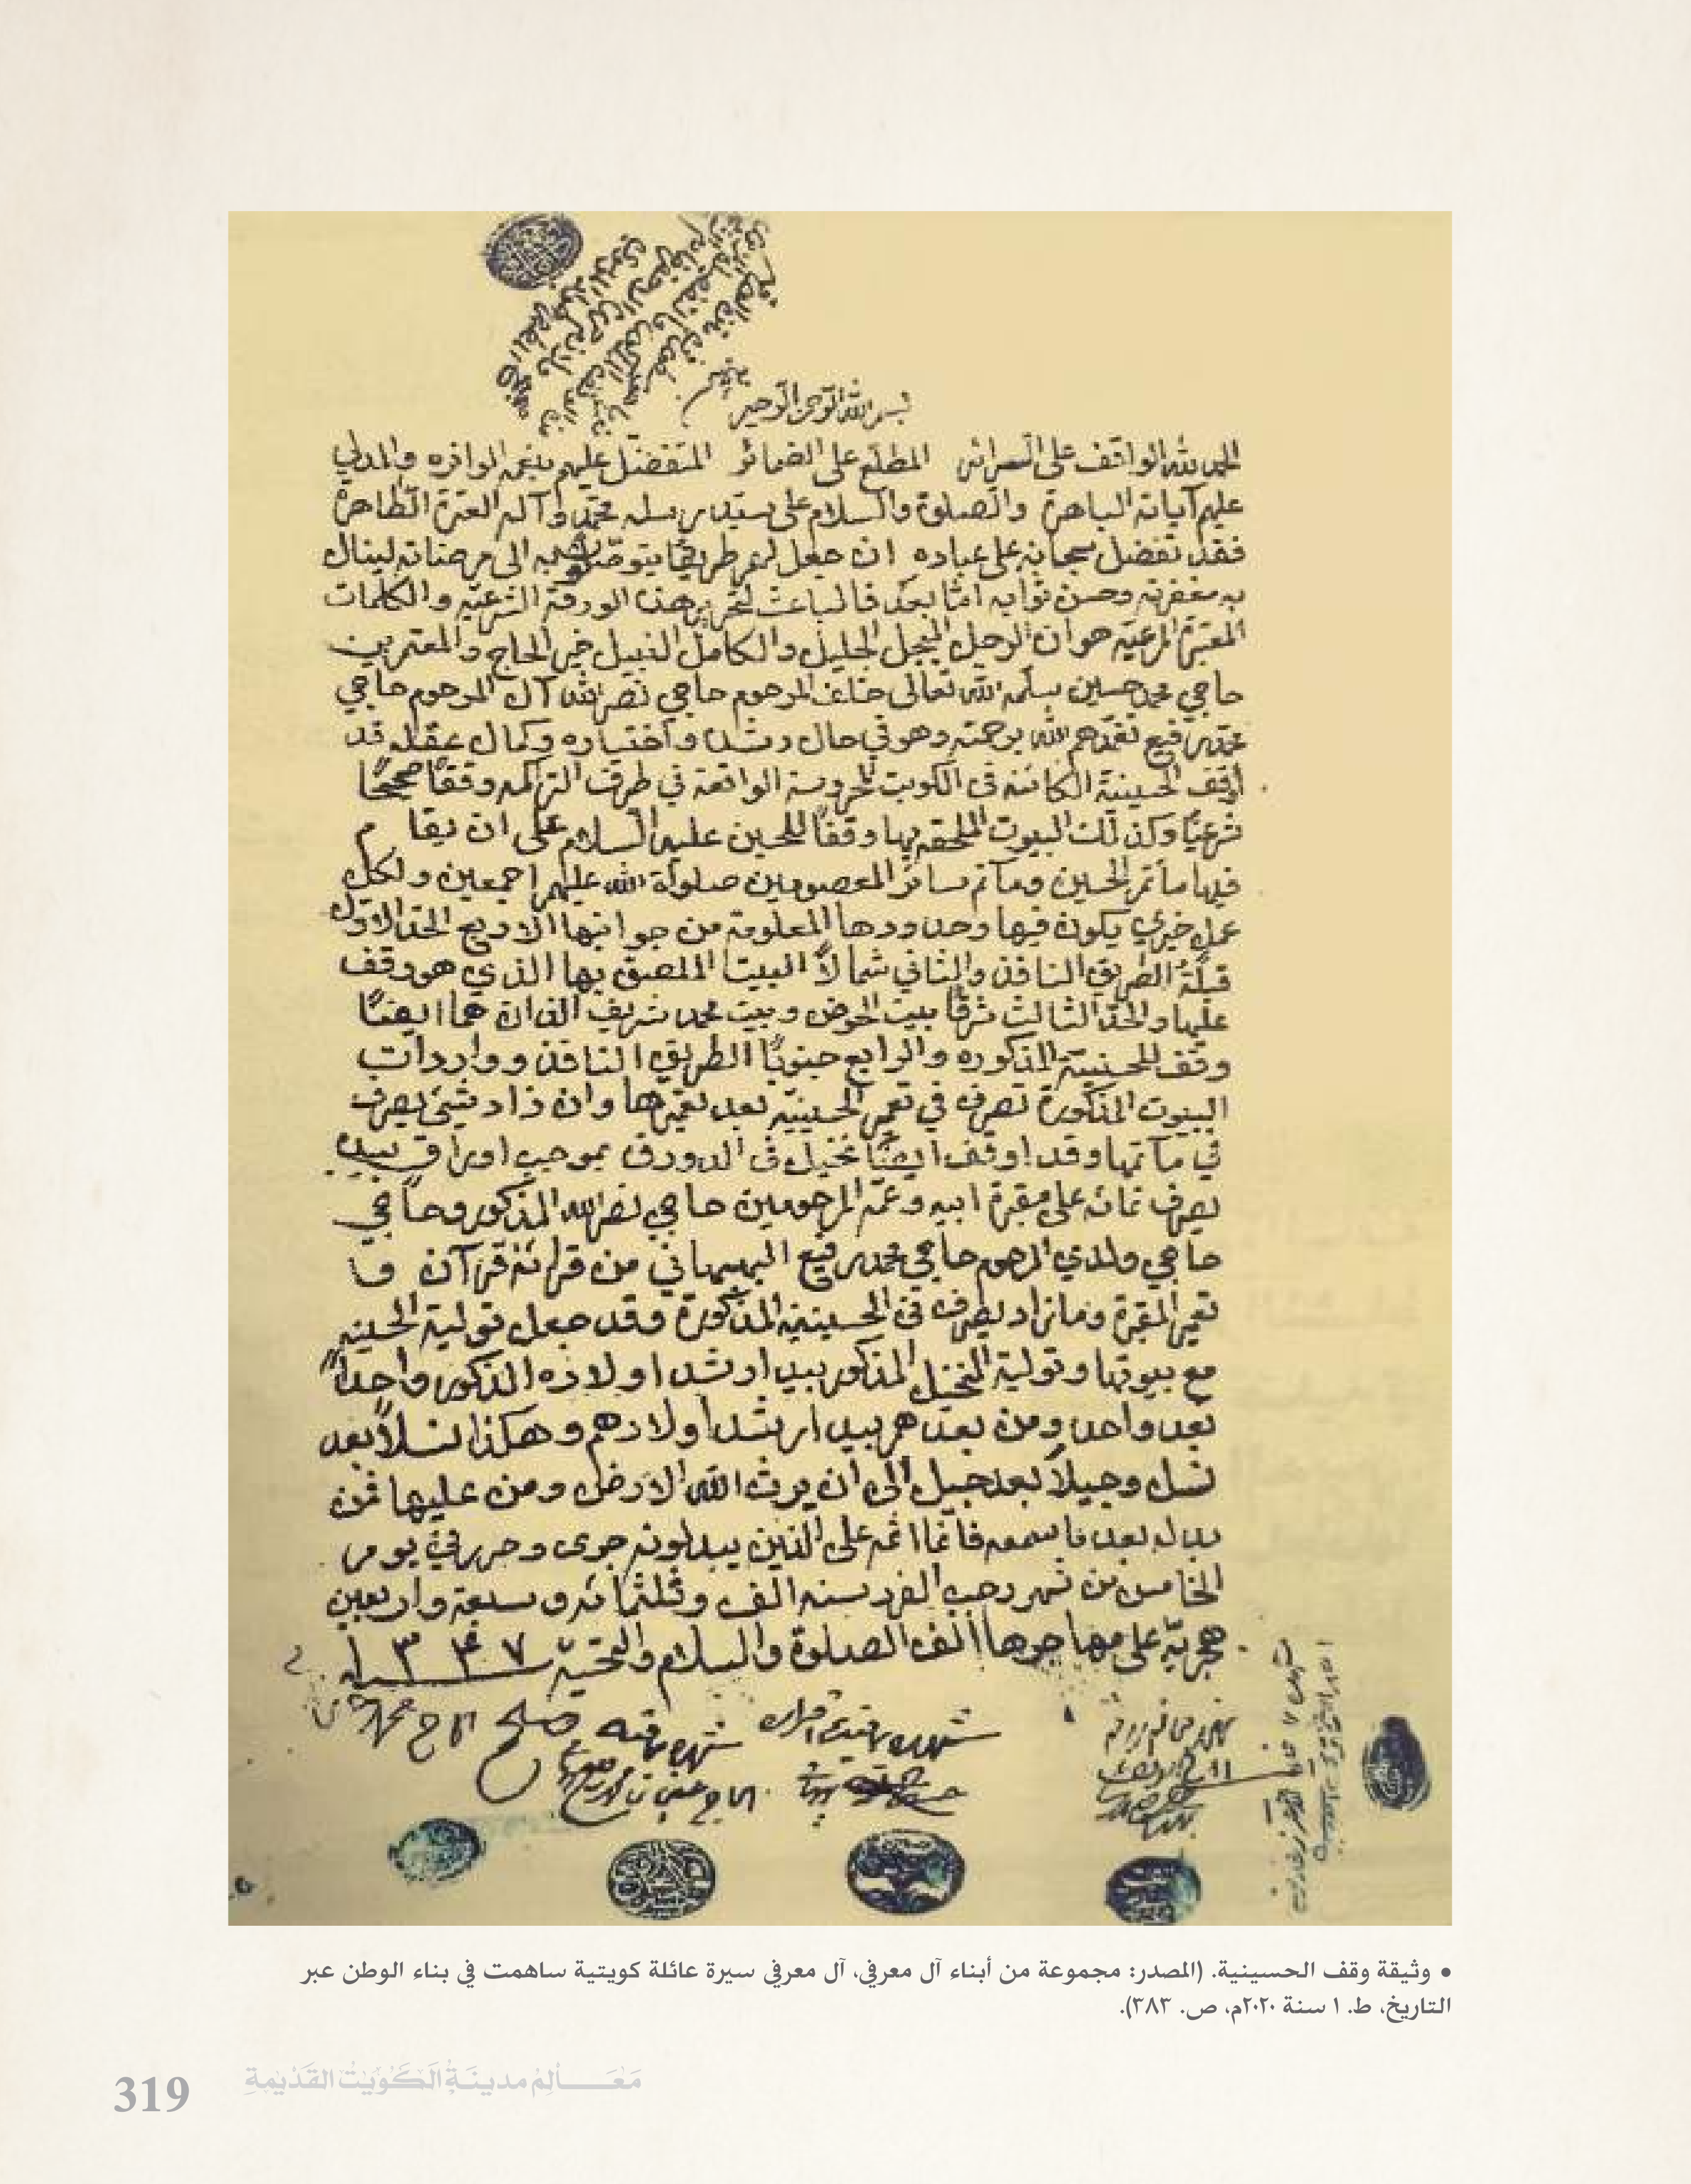 بسم الله الرحمن الرحيم
الحمد لله الواقف على السرائر المطلع على الضمائر المتفضل عليهم بنعمه الوافره والمدلي
عليهم آياته الباهرة والصلوة والسلام على سيد رسله محمد وآله العترة الطاهرة
فقد تفضل سبحانه على عباده ان جعل لهم طريقا يتوصلون به الى مرضاته لينال
به مغفرته وحسن ثوابه اما بعد فالباعث لتحرير هذه الورقة الشرعيه والكلمات
المعتبرة المرعيه هو ان الرجل المبجل الجليل والكامل النبيل خير الحاج والمعتمرين
حاجي محمد حسين سلمه الله تعالى خلف المرحوم حاجي نصر الله آل المرحوم حاجي
محمد رفيع تغمدهم الله برحمته وهو في حال رشده واختياره وكمال عقله قد
أوقف الحسينية الكائنه في الكويت المحروسة الواقعة في طرف التراكمه وقفًا صحيحًا
شرعيًا وكذلك البيوت الملحقه بها وقفًا للحسين عليه السلام على ان يقام
فيها مأتم الحسين ومآتم سائر المعصومين صلوة الله عليهم اجمعين ولكل
عمل خيري يكون فيها وحدودها المعلومة من جوانبها الاربع الحد الاول
قبلةً الطريق النافذ والثاني شمالاً البيت الملصق بها الذي هو وقف
عليها والحد الثالث شرقًا بيت الحوض وبيت محمد شريف الذان هما ايضًا
وقف للحسينية المذكوره والرابع جنوبًا الطريق النافذ وواردات
البيوت المذكورة تصرف في تعمير الحسينيه بعد تعميرها وان زاد شيئ يصرف
في مآتمها وقد اوقف ايضًا نخيل في الدورق بموجب اوراق بيده
يصرف نمائه على مقبرة ابيه وعمه المرحومين حاجي نصر الله المذكور وحاجي
حاجي ولدي المرحوم حاجي محمد رفيع البهبهاني من قرائة قرآن و
تعمير المقبرة وما زاد يصرف في الحسينية المذكورة وقد جعل تولية الحسينيه
مع بيوتها وتولية النخيل المذكور بيد ارشد اولاده الذكور واحدًا
بعد واحد ومن بعدهم بيد ارشد اولادهم وهكذا نسلاً بعد
نسل وجيلاً بعد جيل الى ان يرث الله الارض ومن عليها فمن
بدله بعد ما سمعه فانما اثمه على الذين يبدلونه جرى وحرر في يوم
الخامس من شهر رجب الفرد سنه الف وثلثمائه وسبعة واربعين
هجريّة على مهاجرها ألف الصلوة والسلام والتحيّة ١٣٤٧
• وثيقة وقف الحسينية. (المصدر: مجموعة من أبناء آل معرفي، آل معرفي سيرة عائلة كويتية ساهمت في بناء الوطن عبر
التاريخ، ط. ١ سنة ٢٠٢٠م، ص. ٣٨٣).
مَعَالِمُ مدينَةُ الكُوَيْتُ القَدْيمةِ
319